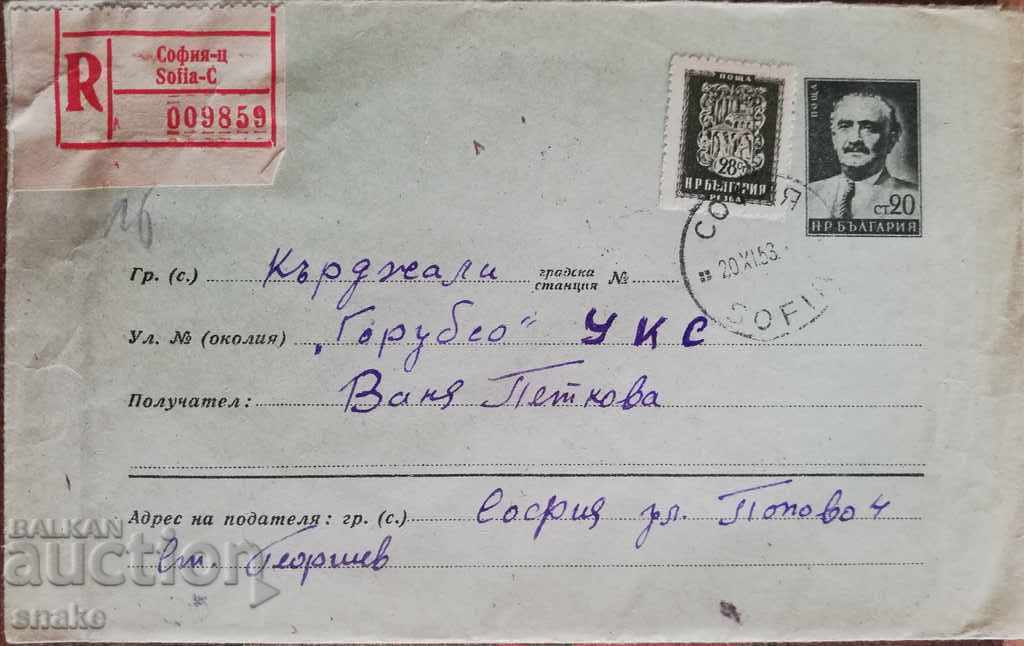 R
София-ц
Sofia-C
009859
ПОЩА
28 СТ
НР БЪЛГАРИЯ
РЕЗБА
ПОЩА
СТ. 20
НР БЪЛГАРИЯ
20 XI 53
SOFIA
16
Гр. (с.) Кърджали градска станция №
Ул. № (околия) „Горубсо" УКС
Получател: Ваня Петкова
Адрес на подателя: гр. (с.) София ул. Попово 4
Ст. Георгиев
BALKAN
auction
snake